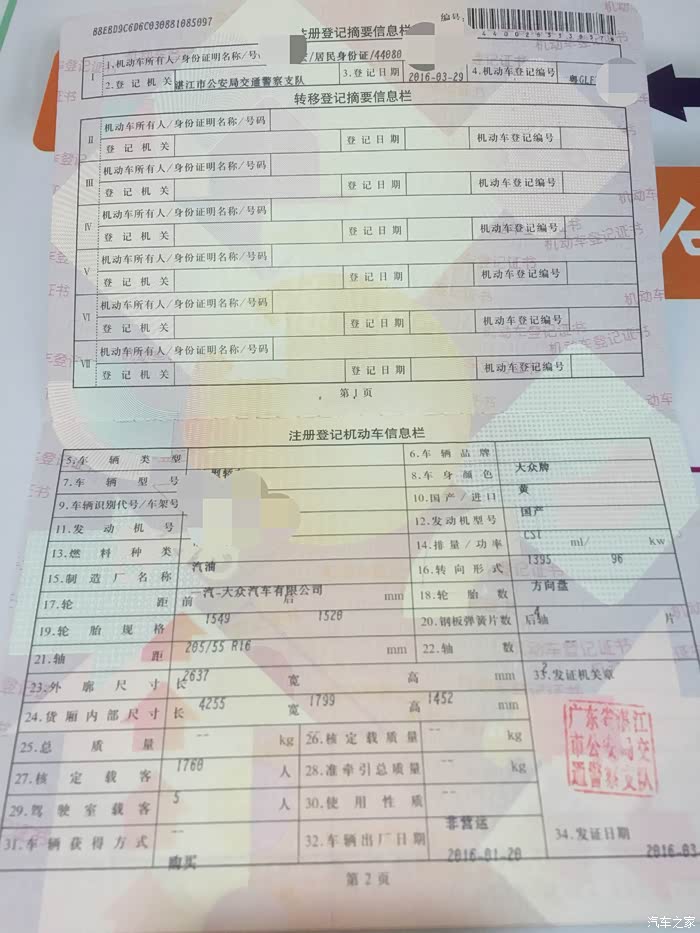 B8EBD9C6D6C030881085097
注册登记摘要信息栏
编号:
I
1.机动车所有人/身份证明名称/号
/居民身份证/44080
2.登记机关 湛江市公安局交通警察支队 3.登记日期 2016-03-29 4.机动车登记编号 粤GLF
转移登记摘要信息栏
II 机动车所有人/身份证明名称/号码
登记机关 登记日期 机动车登记编号
III 机动车所有人/身份证明名称/号码
登记机关 登记日期 机动车登记编号
IV 机动车所有人/身份证明名称/号码
登记机关 登记日期 机动车登记编号
V 机动车所有人/身份证明名称/号码
登记机关 登记日期 机动车登记编号
VI 机动车所有人/身份证明名称/号码
登记机关 登记日期 机动车登记编号
VII 机动车所有人/身份证明名称/号码
登记机关 登记日期 机动车登记编号
第1页
注册登记机动车信息栏
5.车辆类型 6.车辆品牌 大众牌
7.车辆型号 8.车身颜色 黄
9.车辆识别代号/车架号 10.国产/进口 国产
11.发动机号 12.发动机型号 CST
13.燃料种类 汽油 14.排量/功率 1395 ml/ 96 kw
15.制造厂名称 一汽-大众汽车有限公司 16.转向形式 方向盘
17.轮距 前 1549 后 1520 mm 18.轮胎数 4
19.轮胎规格 205/55 R16 20.钢板弹簧片数 后轴 片
21.轴距 2637 mm 22.轴数 2
23.外廓尺寸 长 4255 宽 1799 高 1452 mm 33.发证机关章
24.货厢内部尺寸 长 -- 宽 -- 高 -- mm
广东省湛江
市公安局交
通警察支队
25.总质量 1760 kg 26.核定载质量 -- kg
27.核定载客 5 人 28.准牵引总质量 -- kg
29.驾驶室载客 -- 人 30.使用性质 非营运
31.车辆获得方式 购买 32.车辆出厂日期 2016-01-20 34.发证日期 2016-03
第2页
汽车之家